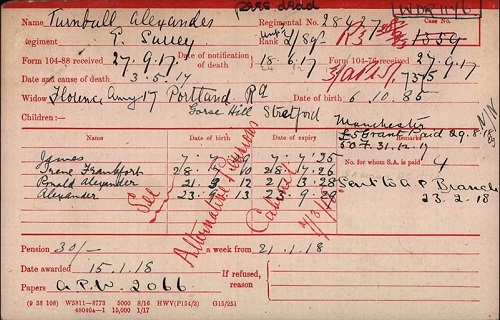 pres dead WOR 11/46
Name Turnbull Alexander Regimental No. 28427 Case No.
Regiment E. Surrey Rank 2/Sgt 1359
Form 104-88 received 27.9.17 Date of notification of death 18.6.17 Form 104-76 received 27.9.17
Date and cause of death 3.5.17 7375
Widow Florence Amy 17 Portland Rd Date of birth 6.10.85
Gorse Hill Stretford
Children:— Manchester
£5 Grant Paid 29.8.17
Name Date of birth Date of expiry Remarks
50 F. 31.12.17
James 7.7.9 7.7.25 No. for whom S.A. is paid 4
Irene Frankfort 28.7.10 28.7.26
Ronald Alexander 21.3.12 21.3.28 Sent to A P Branch
Alexander 23.9.13 23.9.29 23.2.18
See Alternative Pensions Cabinet
Pension 30/- a week from 21.1.18
Date awarded 15.1.18 If refused, reason
Papers A.P.W. 2066
(9 38 108) W5811—8773 5000 8/16 HWV(P154/2) G15/251
48040A—1 15,000 1/17